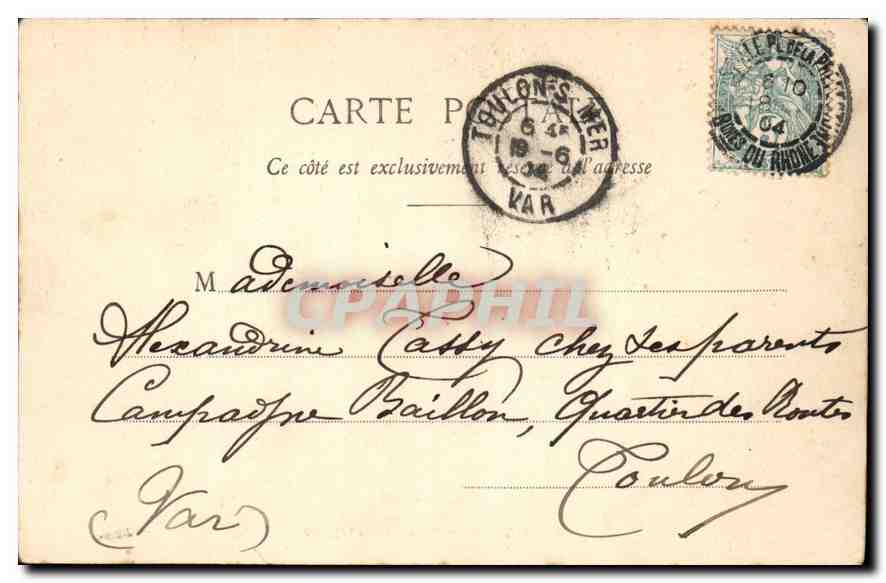 CARTE POSTALE
Ce côté est exclusivement réservé à l'adresse
TOULON-S-MER
6
19 -6
04
VAR
PL. DE LA PR
10
04
BOUES DU RHONE
Mademoiselle
CPAPHIL
Alexandrine Tassy chez ses parents
Campagne Baillon, Quartier des Routes
Toulon
(Var)